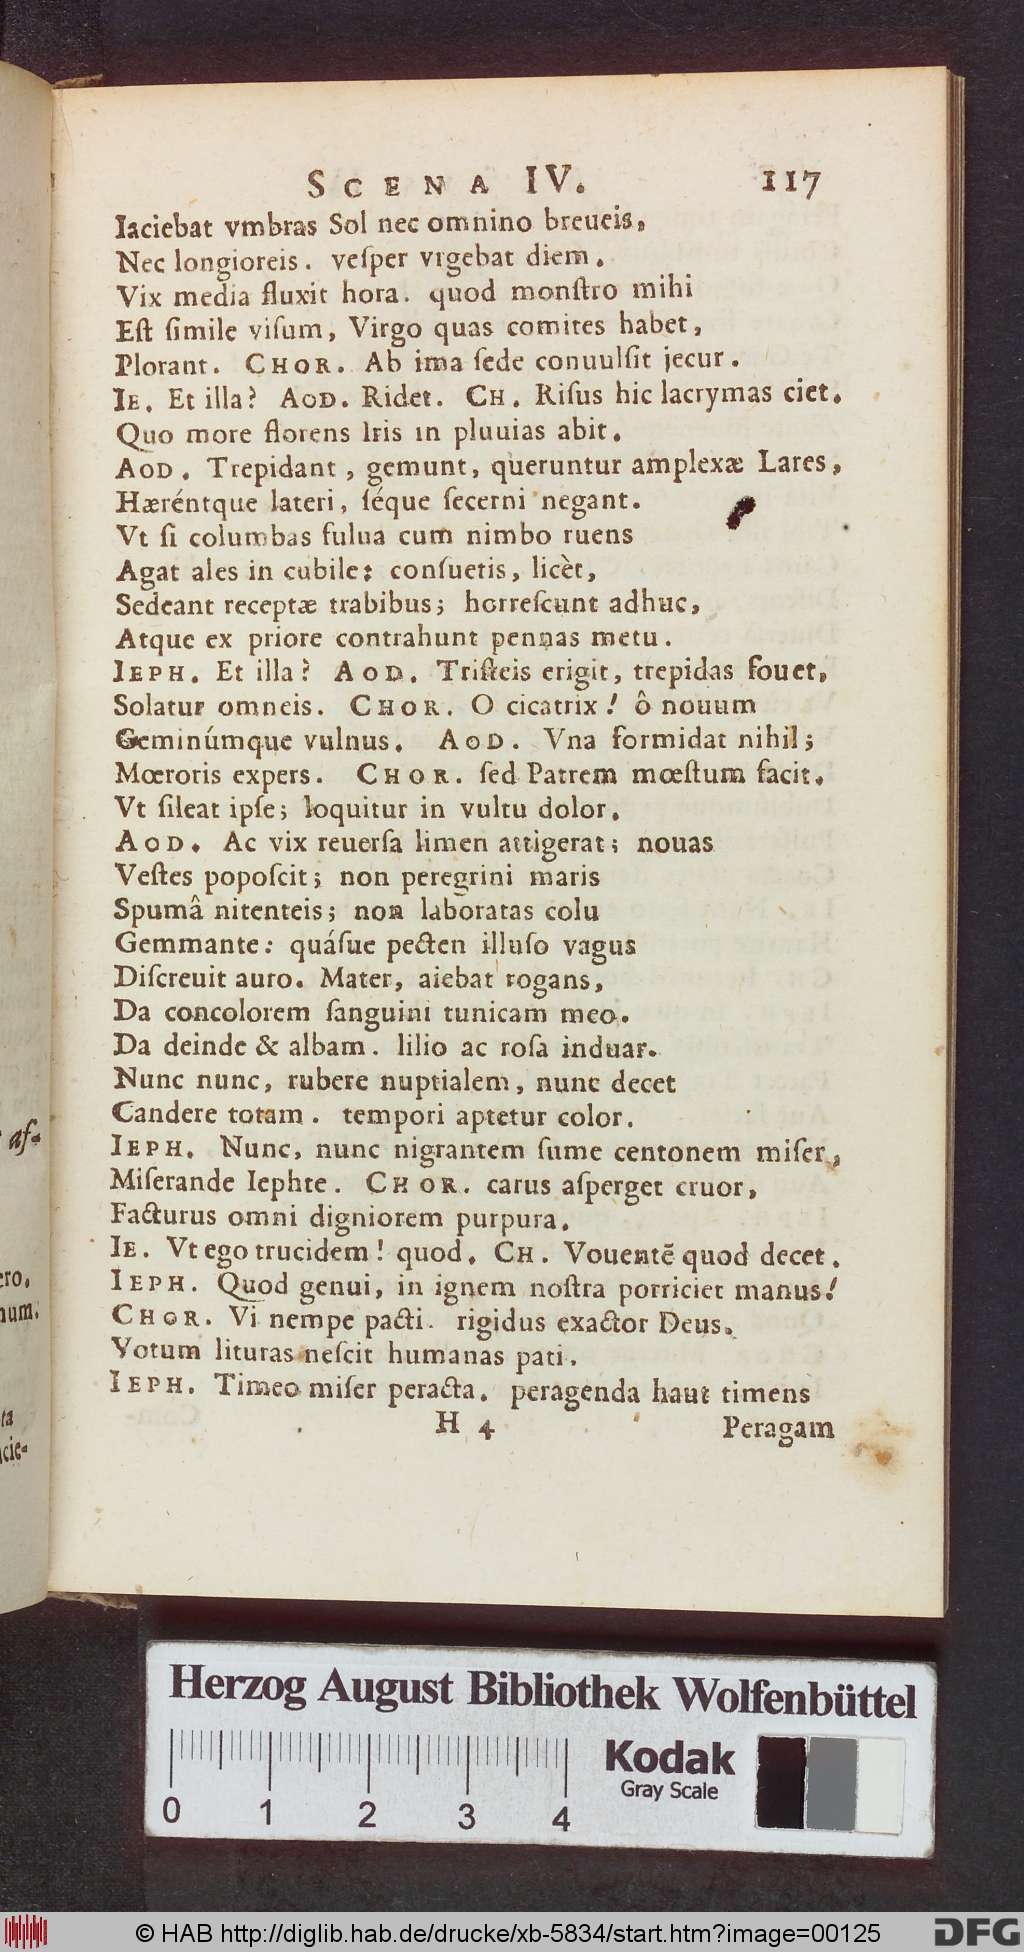 SCENA IV. 117
Iaciebat vmbras Sol nec omnino breueis,
Nec longioreis. veſper vrgebat diem.
Vix media fluxit hora. quod monſtro mihi
Eſt ſimile viſum, Virgo quas comites habet,
Plorant. CHOR. Ab ima ſede conuulſit jecur.
IE. Et illa? AOD. Ridet. CH. Riſus hic lacrymas ciet.
Quo more florens Iris in pluuias abit.
AOD. Trepidant, gemunt, queruntur amplexæ Lares,
Hæréntque lateri, ſéque ſecerni negant.
Vt ſi columbas fulua cum nimbo ruens
Agat ales in cubile: conſuetis, licèt,
Sedeant receptæ trabibus; horreſcunt adhuc,
Atque ex priore contrahunt pennas metu.
IEPH. Et illa? AOD. Triſteis erigit, trepidas fouet,
Solatur omneis. CHOR. O cicatrix! ô nouum
Geminúmque vulnus. AOD. Vna formidat nihil;
Mœroris expers. CHOR. ſed Patrem mœſtum facit.
Vt ſileat ipſe; loquitur in vultu dolor.
AOD. Ac vix reuerſa limen attigerat; nouas
Veſtes popoſcit; non peregrini maris
Spumâ nitenteis; non laboratas colu
Gemmante: quáſue pecten illuſo vagus
Diſcreuit auro. Mater, aiebat rogans,
Da concolorem ſanguini tunicam meo.
Da deinde & albam. lilio ac roſa induar.
Nunc nunc, rubere nuptialem, nunc decet
Candere totam. tempori aptetur color.
IEPH. Nunc, nunc nigrantem ſume centonem miſer,
Miſerande Iephte. CHOR. carus aſperget cruor,
Facturus omni digniorem purpura.
IE. Vt ego trucidem! quod. CH. Vouentē quod decet.
IEPH. Quod genui, in ignem noſtra porriciet manus!
CHOR. Vi nempe pacti. rigidus exactor Deus.
Votum lituras neſcit humanas pati.
IEPH. Timeo miſer peracta. peragenda haut timens
H 4 Peragam
af-
ero.
num.
ta
cie-
Herzog August Bibliothek Wolfenbüttel
Kodak
Gray Scale
0 1 2 3 4
© HAB http://diglib.hab.de/drucke/xb-5834/start.htm?image=00125 DFG